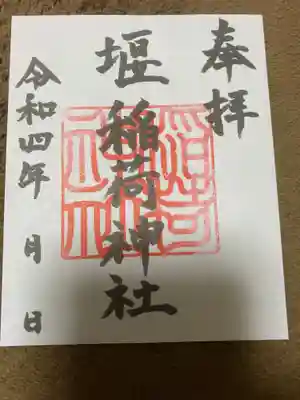 奉拝
堰稲荷神社
令和四年 月 日